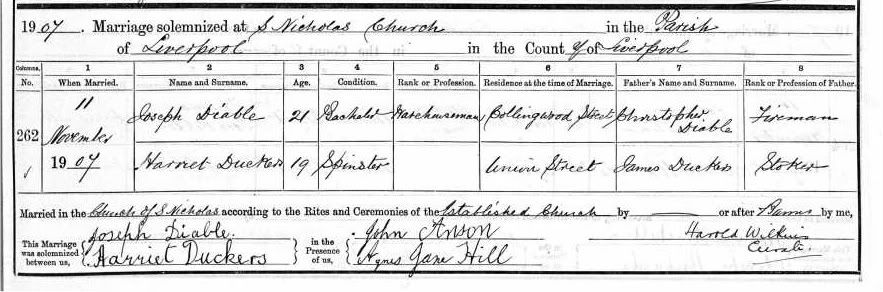 1907. Marriage solemnized at S Nicholas Church in the Parish
of Liverpool in the County of Liverpool
Columns. 1 2 3 4 5 6 7 8
No. When Married. Name and Surname. Age. Condition. Rank or Profession. Residence at the time of Marriage. Father's Name and Surname. Rank or Profession of Father.
11 Joseph Diable 21 Bachelor Warehouseman Collingwood Street Christopher Diable Fireman
262 November
1907 Harriet Duckers 19 Spinster Union Street James Duckers Stoker
Married in the Church of S Nicholas according to the Rites and Ceremonies of the Established Church by or after Banns by me,
This Marriage was solemnized between us, Joseph Diable. in the Presence of us, John Anson Harold Wilkins
Harriet Duckers Agnes Jane Hill Curate.